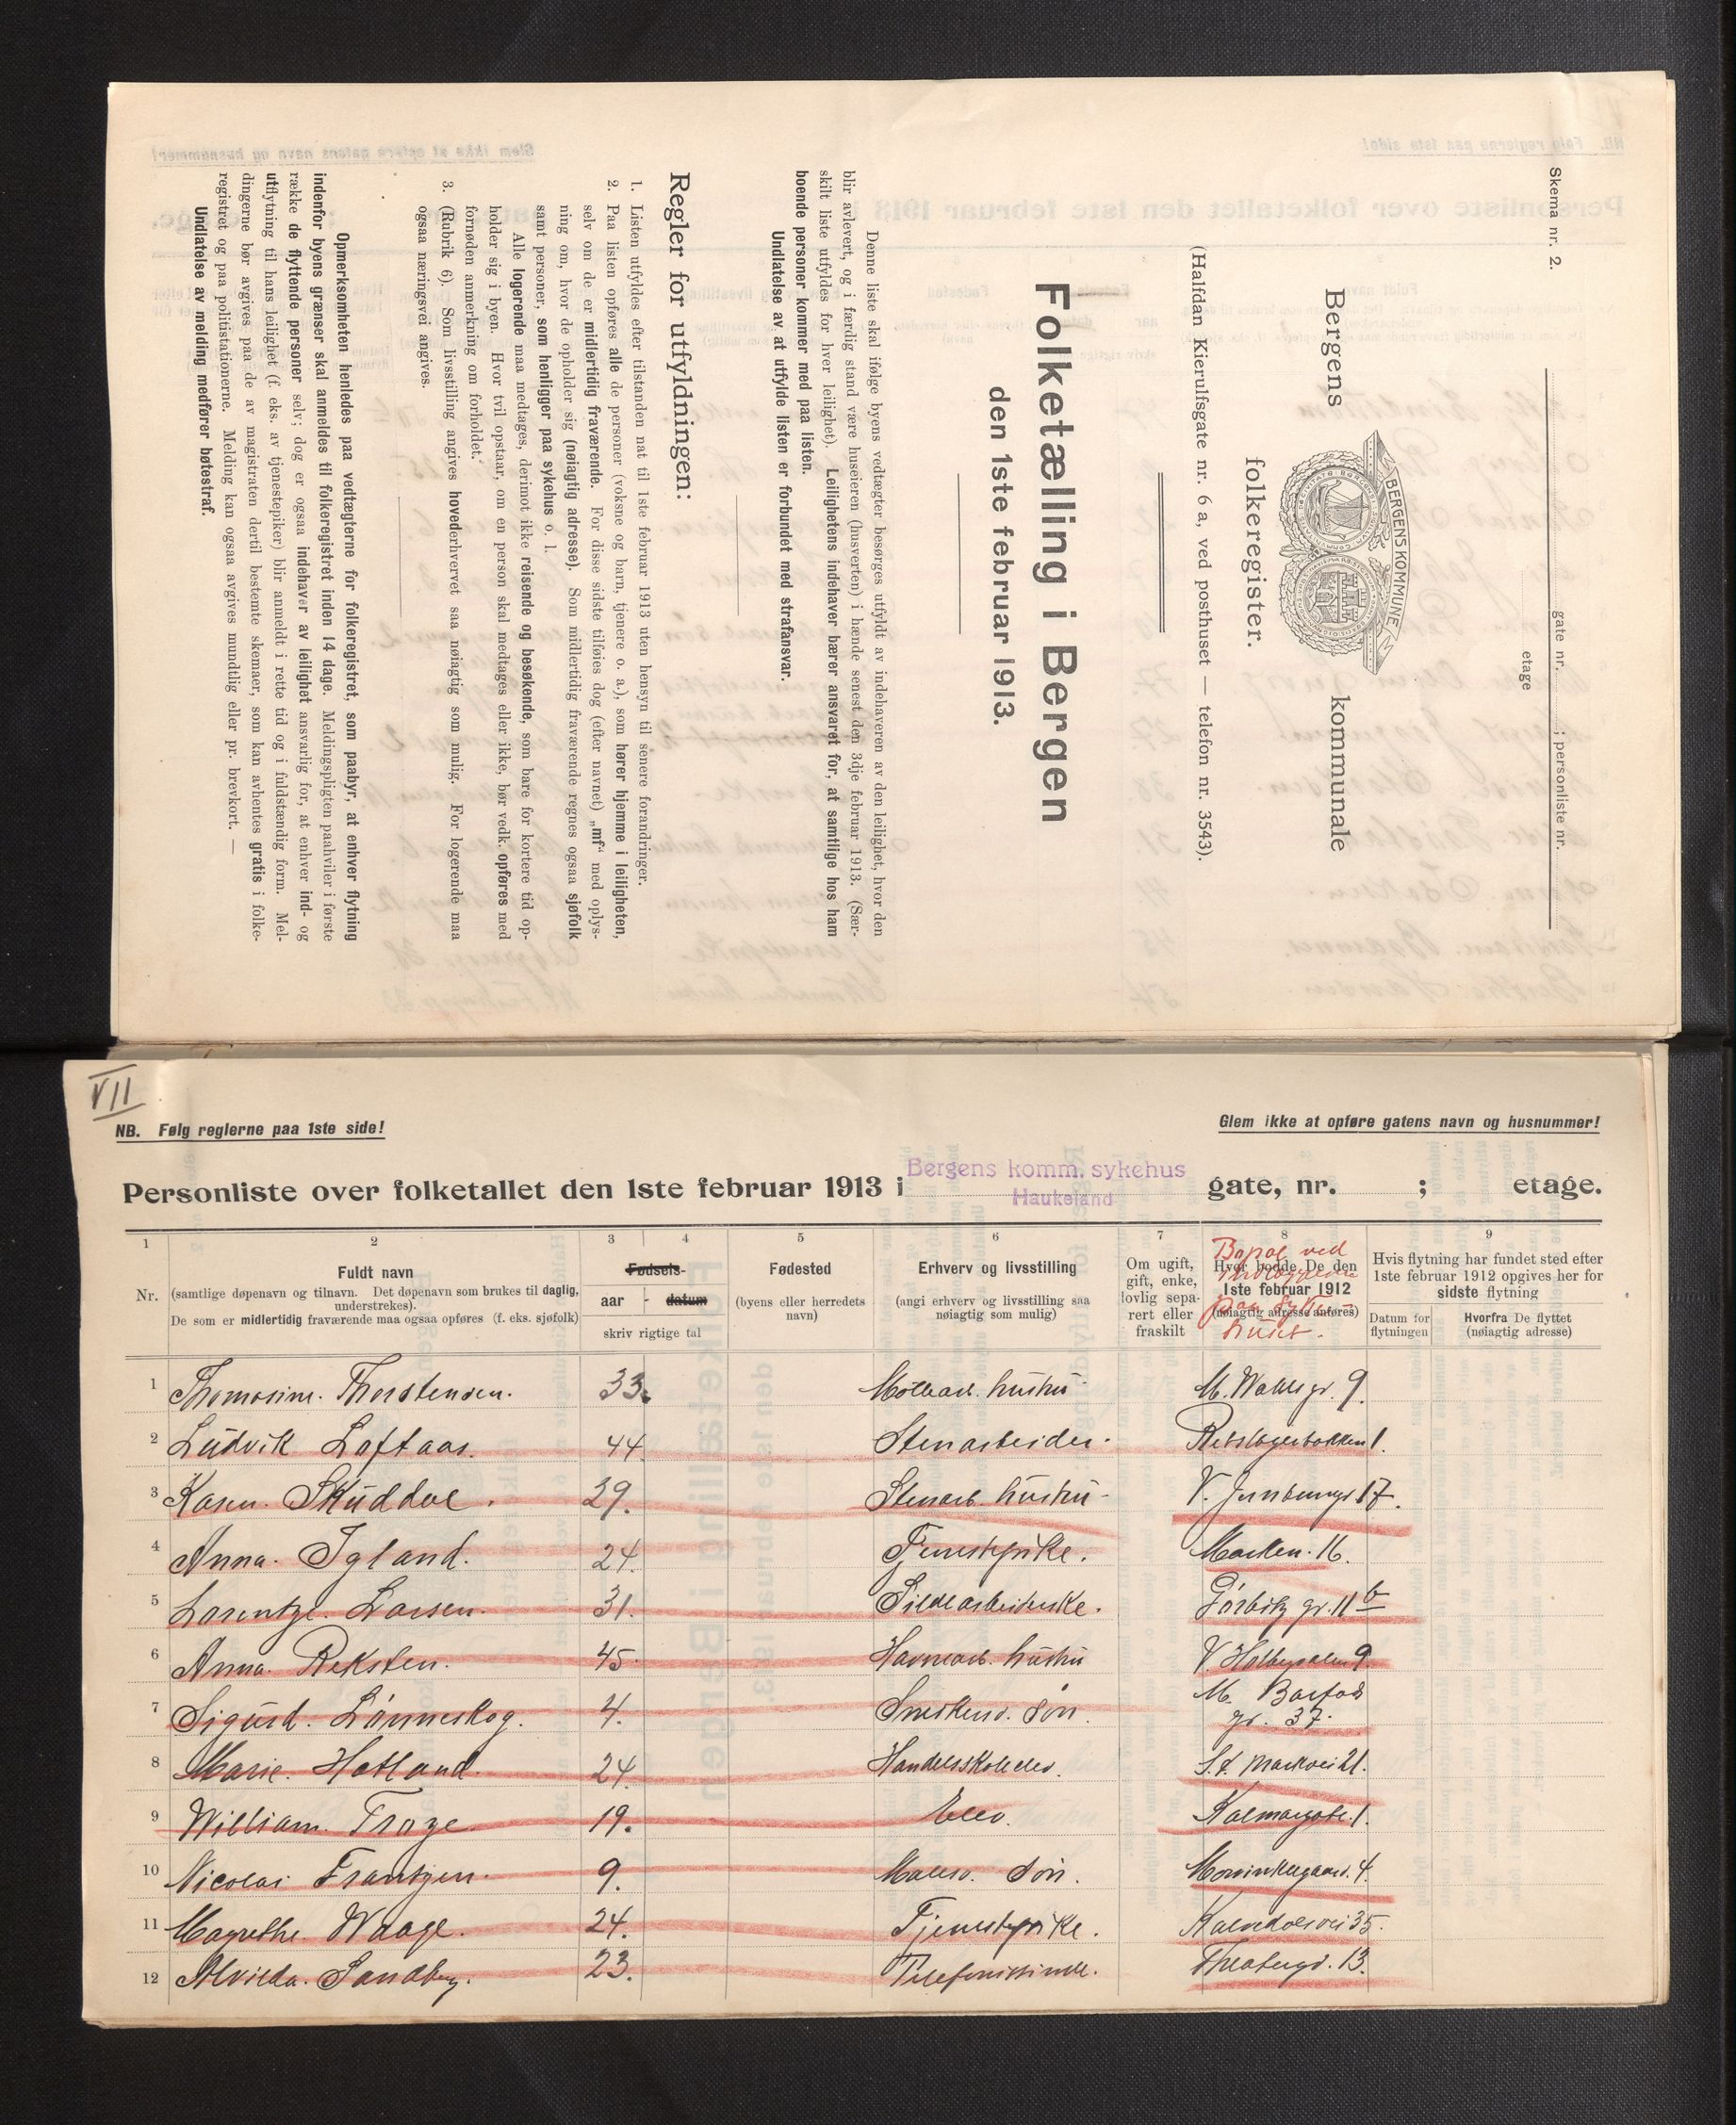 Skema nr. 2.
gate nr. ; personliste nr.
etage
BERGENS KOMMUNE
Bergens kommunale
folkeregister.
(Halfdan Kierulfsgate nr. 6 a, ved posthuset — telefon nr. 3543).
Folketælling i Bergen
den 1ste februar 1913.
Denne liste skal ifølge byens vedtægter besørges utfyldt av indehaveren av den leilighet, hvor den
blir avlevert, og i færdig stand være huseieren (husverten) i hænde senest den 3dje februar 1913. (Sær-
skilt liste utfyldes for hver leilighet). Leilighetens indehaver bærer ansvaret for, at samtlige hos ham
boende personer kommer med paa listen.
Undlatelse av at utfylde listen er forbundet med strafansvar.
Regler for utfyldningen:
1. Listen utfyldes efter tilstanden nat til 1ste februar 1913 uten hensyn til senere forandringer.
2. Paa listen opføres alle de personer (voksne og barn, tjenere o. a.), som hører hjemme i leiligheten,
selv om de er midlertidig fraværende. For disse sidste tilføies dog (efter navnet) „mf“ med oplys-
ning om, hvor de opholder sig (nøiagtig adresse). Som midlertidig fraværende regnes ogsaa sjøfolk
samt personer, som henligger paa sykehus o. l.
Alle logerende maa medtages, derimot ikke reisende og besøkende, som bare for kortere tid op-
holder sig i byen. Hvor tvil opstaar, om en person skal medtages eller ikke, bør vedk. opføres med
fornøden anmerkning om forholdet.
3. (Rubrik 6). Som livsstilling angives hovederhvervet saa nøiagtig som mulig. For logerende maa
ogsaa næringsvei angives.
Opmerksomheten henledes paa vedtægterne for folkeregistret, som paabyr, at enhver flytning
indenfor byens grænser skal anmeldes til folkeregistret inden 14 dage. Meldingspligten paahviler i første
række de flyttende personer selv; dog er ogsaa indehaver av leilighet ansvarlig for, at enhver ind- og
utflytning til hans leilighet (f. eks. av tjenestepiker) blir anmeldt i rette tid og i fuldstændig form. Mel-
dingerne bør avgives paa de av magistraten dertil bestemte skemaer, som kan avhentes gratis i folke-
registret og paa politistationerne. Melding kan ogsaa avgives mundtlig eller pr. brevkort. —
Undlatelse av melding medfører bøtestraf.
VII
NB. Følg reglerne paa 1ste side! Glem ikke at opføre gatens navn og husnummer!
Personliste over folketallet den 1ste februar 1913 i Bergens komm. sykehus Haukeland gate, nr. ; etage.
1 2 3 4 5 6 7 8 9
Nr.
Fuldt navn
(samtlige døpenavn og tilnavn. Det døpenavn som brukes til daglig, understrekes).
De som er midlertidig fraværende maa ogsaa opføres (f. eks. sjøfolk)
Fødsels-
aar - datum
skriv rigtige tal
Fødested
(byens eller herredets navn)
Erhverv og livsstilling
(angi erhverv og livsstilling saa nøiagtig som mulig)
Om ugift, gift, enke, lovlig sepa- rert eller fraskilt
Bopæl ved
Indlæggelsen
paa syke-
huset.
Hvor bodde De den 1ste februar 1912
(nøiagtig adresse anføres)
Hvis flytning har fundet sted efter 1ste februar 1912 opgives her for sidste flytning
Datum for flytningen
Hvorfra De flyttet (nøiagtig adresse)
1 Thomasine. Thorstensen. 33. hustru 9.
2 Ludvik Loftaas. 44. Stenarbeider. Rebslagerbakken 1.
3 Karen. Skuddal. 29. Stenarb. hustru 17.
4 Anna. Igland. 24. Tjenestepike. Marken. 16.
5 Lorentze. Larsen. 31. Sildearbeiderske. Gørbitz gr. 11 b
6 Anna. Reksten. 45. Havnearb. hustru V. Holbergsalm 9.
7 Sigurd. Lønneskog. 4. Snedkers. Søn. gr. 37.
8 Marie. Hatland. 24. Handelsskoleelev. St. Markvei 21.
9 William. Troye. 19. Elev. Kalmargate. 1.
10 Nicolai Frantzen. 9. Malers. Søn. 4.
11 Magrethe. Waage. 24. Tjenestepike. Kalvedalsvei 35.
12 Alvilda. Sandberg. 23. Telefonistinde. Theatergt. 13.